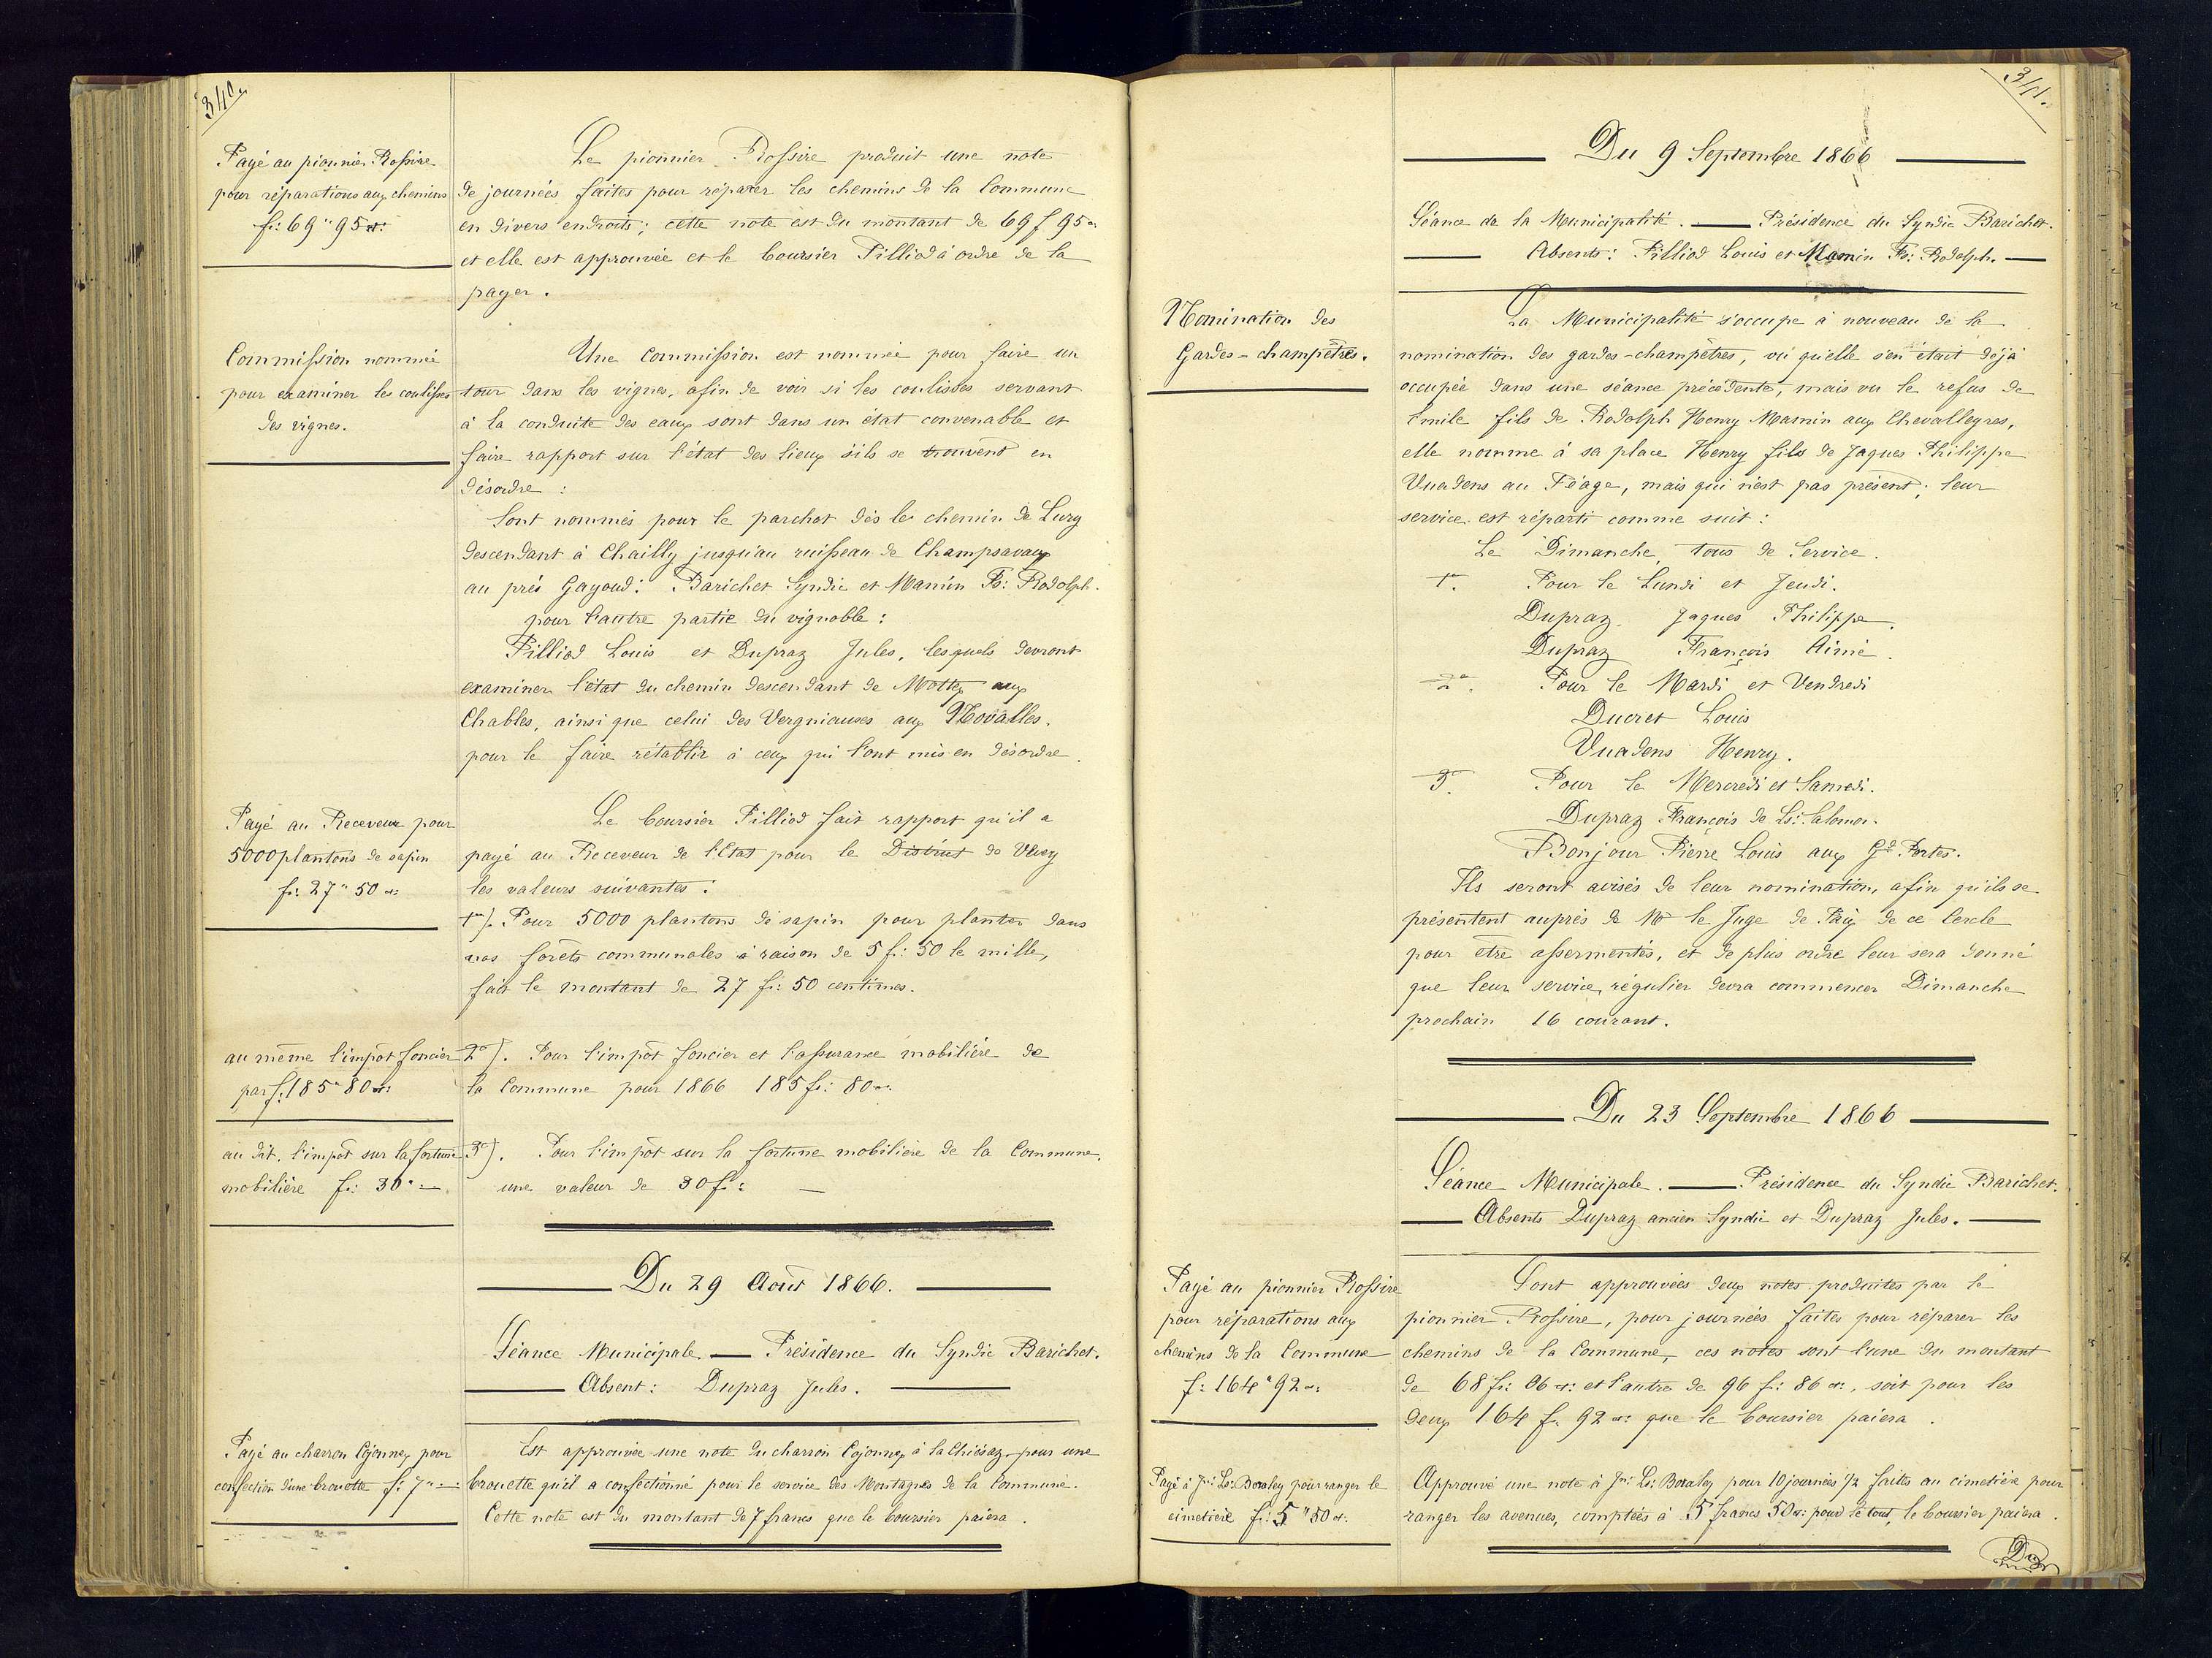 340.
Payé au pionnier Rossire
pour réparations aux chemins
fr: 69 " 95 ct:
Le pionnier Rossire produit une note
de journées faites pour réparer les chemins de la Commune
en divers endroits; cette note est du montant de 69 f 95 ct
et elle est approuvée et le boursier Pilliod à ordre de la
payer.
Commission nommée
pour examiner les coulisses
des vignes.
Une Commission est nommée pour faire un
tour dans les vignes, afin de voir si les coulisses servant
à la conduite des eaux sont dans un état convenable et
faire rapport sur l'état des lieux s'ils se trouvent en
désordre :
Sont nommés pour le parchet dès le chemin de Luzy
descendant à Chailly jusqu'au ruisseau de Champsavaux
au prés Gayoud: Barichet Syndic et Mamin Fs: Rodolph.
pour l'autre partie du vignoble :
Pilliod Louis et Dupraz Jules, lesquels devront
examiner l'état du chemin descendant de Mottex aux
Chables, ainsi que celui des Vergniauses aux Novalles.
pour le faire rétablir à ceux qui l'ont mis en désordre.
Payé au Receveur pour
5000 plantons de sapin
fr: 27 " 50 ct:
Le boursier Pilliod fait rapport qu'il a
payé au Receveur de l'Etat pour le District de Vevey
les valeurs suivantes :
1er). Pour 5000 plantons de sapin pour planter dans
nos forêts communales à raison de 5 fr: 50 le mille,
fait le montant de 27 fr: 50 centimes.
au même l'impôt foncier
par f: 185 " 80 ct:
2e). Pour l'impôt foncier et l'assurance mobilière de
la Commune pour 1866 185 fr: 80 ct.
au dit. l'impôt sur la fortune
mobilière fr: 30 " —
3e). Pour l'impôt sur la fortune mobilière de la Commune,
une valeur de 30 fr: —
Du 29 Août 1866.
Séance Municipale. — Présidence du Syndic Barichet.
Absent: Dupraz Jules.
Payé au charron Cojonnex pour
confection d'une brouette fr: 7 " —
Est approuvée une note du charron Cojonnex à la Chiésaz, pour une
brouette qu'il a confectionné pour le service des Montagnes de la Commune.
Cette note est du montant de 7 francs que le boursier paiera.
341.
Du 9 Septembre 1866
Séance de la Municipalité. — Présidence du Syndic Barichet.
Absents: Pilliod Louis et Mamin Fs: Rodolph.
Nomination des
Gardes-champêtres.
La Municipalité s'occupe à nouveau de la
nomination des gardes-champêtres, vû qu'elle s'en était déjà
occupée dans une séance précédente, mais vu le refus de
Emile fils de Rodolph Henry Mamin aux Chevalleyres,
elle nomme à sa place Henry fils de Jaques Philippe
Vuadens au Péage, mais qui n'est pas présent; leur
service est réparti comme suit :
Le Dimanche, tous de Service.
1er. Pour le Lundi et Jeudi.
Dupraz Jaques Philippe.
Dupraz François Aimé.
2e. Pour le Mardi et Vendredi
Ducret Louis
Vuadens Henry.
3e. Pour le Mercredi et Samedi.
Dupraz François de Ls: Salomon.
Bonjour Pierre Louis aux Gdes Portes.
Ils seront avisés de leur nomination, afin qu'ils se
présentent auprès de Mr le Juge de Paix de ce Cercle
pour être assermentés, et de plus ordre leur sera donné
que leur service régulier devra commencer Dimanche
prochain 16 courant.
Du 23 Septembre 1866
Séance Municipale. — Présidence du Syndic Barichet.
Absents Dupraz ancien Syndic et Dupraz Jules.
Payé au pionnier Rossire
pour réparations aux
chemins de la Commune
f: 164 " 92 ct:
Sont approuvées deux notes produites par le
pionnier Rossire, pour journées faites pour réparer les
chemins de la Commune, ces notes sont l'une du montant
de 68 fr: 06 ct: et l'autre de 96 fr: 86 ct:, soit pour les
deux 164 fr. 92 ct: que le boursier paiera.
Payé à Jn: Ls: Boraley pour ranger le
cimetière fr: 5 " 50 ct:
Approuvé une note à Jn: Ls: Boraley pour 10 journées 1/2 faites au cimetière pour
ranger les avenues, comptées à 5 francs 50 ct: pour le tout, le boursier paiera.